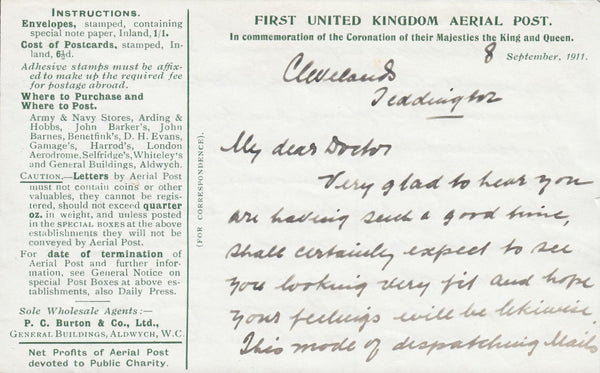 INSTRUCTIONS.
Envelopes, stamped, containing
special note paper, Inland, 1/1.
Cost of Postcards, stamped, In-
land, 6½d.
Adhesive stamps must be affix-
ed to make up the required fee
for postage abroad.
Where to Purchase and
Where to Post.
Army & Navy Stores, Arding &
Hobbs, John Barker's, John
Barnes, Benetfink's, D. H. Evans,
Gamage's, Harrod's, London
Aerodrome, Selfridge's, Whiteley's
and General Buildings, Aldwych.
CAUTION.—Letters by Aerial Post
must not contain coins or other
valuables, they cannot be regis-
tered, should not exceed quarter
oz. in weight, and unless posted
in the SPECIAL BOXES at the above
establishments they will not be
conveyed by Aerial Post.
For date of termination of
Aerial Post and further informa-
tion, see General Notice on
special Post Boxes at above es-
tablishments, also Daily Press.
Sole Wholesale Agents:—
P. C. Burton & Co., Ltd.,
GENERAL BUILDINGS, ALDWYCH, W.C.
Net Profits of Aerial Post
devoted to Public Charity.
(FOR CORRESPONDENCE).
FIRST UNITED KINGDOM AERIAL POST.
In commemoration of the Coronation of their Majesties the King and Queen.
8 September, 1911.
Clevelands
Teddington
My dear Doctor
Very glad to hear you
are having such a good time,
shall certainly expect to see
you looking very fit and hope
your feelings will be likewise.
This mode of dispatching Mails